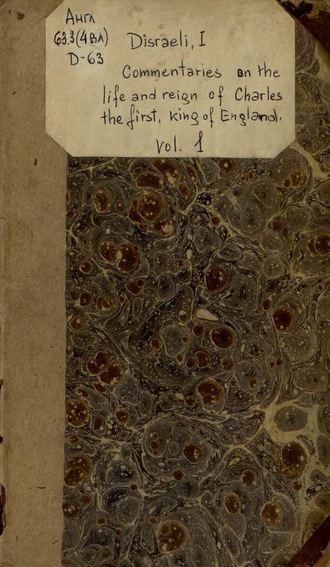 Англ
63.3(4Вл)
D-63
Disraeli, I
Commentaries on the
life and reign of Charles
the first, king of England.
vol. 1